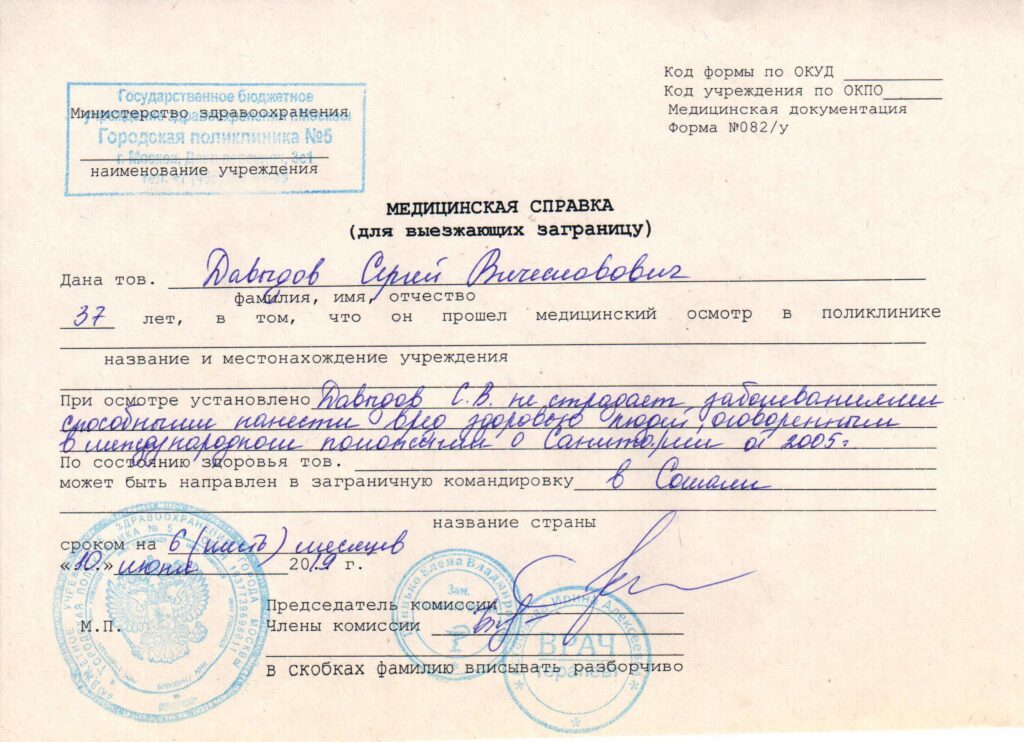 Код формы по ОКУД
Код учреждения по ОКПО
Медицинская документация
Форма №082/у
Государственное бюджетное
Министерство здравоохранения
Городская поликлиника №5
г. Москва,
наименование учреждения
МЕДИЦИНСКАЯ СПРАВКА
(для выезжающих заграницу)
Дана тов. Давыдов Сергей Вячеславович
фамилия, имя, отчество
37 лет, в том, что он прошел медицинский осмотр в поликлинике
название и местонахождение учреждения
При осмотре установлено Давыдов С.В. не страдает заболеваниями
способными нанести вред здоровью людей, оговоренными
в международном положении о Санитарии от 2005г.
По состоянию здоровья тов.
может быть направлен в заграничную командировку в Сомали
название страны
сроком на 6 (шесть) месяцев
«10.» 2019 г.
Председатель комиссии
М.П. Члены комиссии
в скобках фамилию вписывать разборчиво
Елена
Зам.
Ирина Алексеевна
ВРАЧ
терапевт